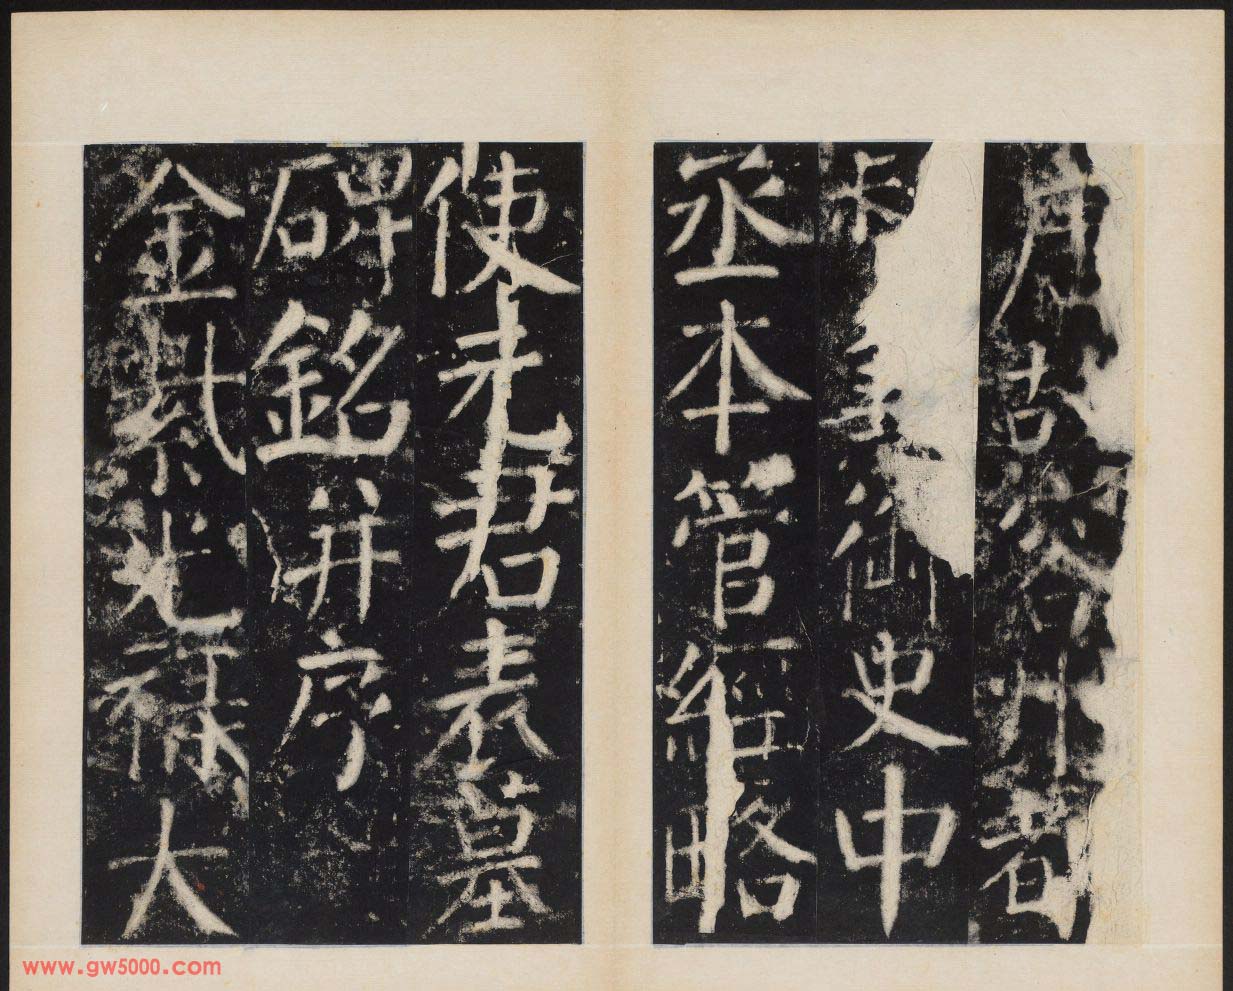 唐故容州都
御史中
丞本管經略
使元君表墓
碑銘并序
金紫光祿大
www.gw5000.com